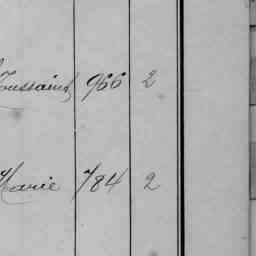 Toussaint 966 2
Marie 784 2